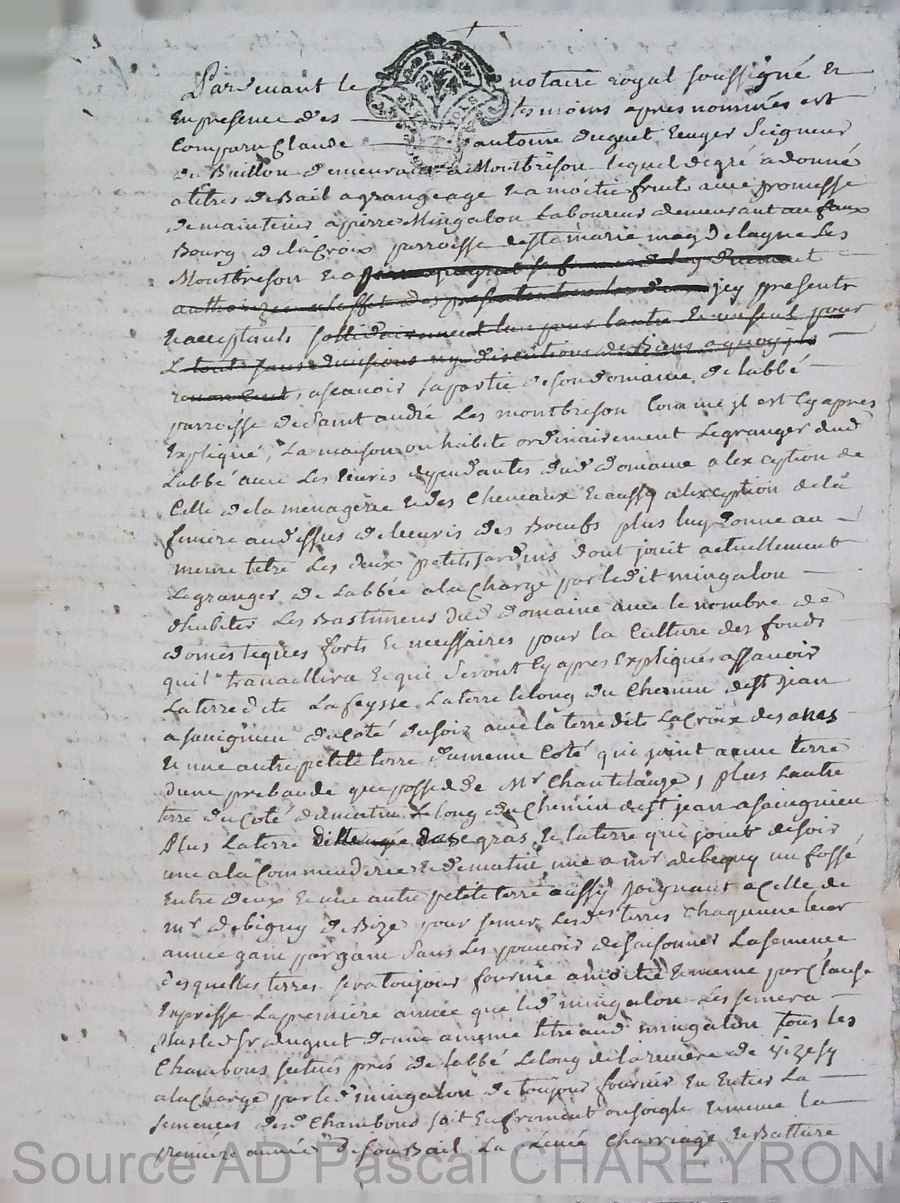 Pardevant le notaire royal soussigné et
En presence des temoins apres nommés est
Comparu Claude antoine duguet Ecuyer Seigneur
du Buillon demeurant a Montbrison lequel de gré a donné
a titres de Bail a grangeage et a moitié fruit avec promesse
de maintenir a pierre Mingalon Laboureur demeurant au faux
Bourg de la Croix parroisse de ste marie magdelayne Les
Montbrison et a
authorizée a leffet des presentes jcy presents
et acceptants sollidairement lun pour lautre et un seul pour
L tout sans division ny discutions de Biens a quoy ils
renoncent, ascavoir la partie de son domaine de labbé
parroisse de saint andré Les montbrison Comme jl est Cy apres
Expliqué, La maison ou habite ordinairement Le granger dud
Labbé avec Les Ecuris dependantes dud domaine a lexception de
Celle de la menagerie et des Chevaux et aussy a lexception de la
finiere au dessus de lecuris des Boeufs plus luy donne au
meme titre Les deux petits jardins dont jouit actuellement
Le granger de Labbée a la Charge par ledit mingalon
dhabiter Les Bastimens dud domaine avec le nombre de
domestiques forts et necessaires pour la Culture des fonds
quil travaillera et qui seront Cy apres Expliqués assavoir
La terre dite La feysse La terre le long du Chemin de st jean
a savignieu du Coté du soir avec la terre dit La Croix des anes
et une autre petite terre du meme Coté qui joint a une terre
dune prebande que possedde Mr Chantelauze, plus Lautre
terre du Coté du matin Le long du Chemin de st jean a savignieu
Plus La terre gras et la terre qui joint de soir
une a la Commenderie et de matin une a mr de bequy un fossé
Entre deux et une autre petite terre aussy joignant a Celle de
mr de bigny de Bize pour semer Lesdes terres Chaquune leur
année gain par gain sans Les pouvoir desaisonner La semence
desquelles terres sera toujour fournie a moitié et meme par Clause
Expresse La premiere année que led mingalon Les semera
Plus led sr duguet donne a meme titre aud mingalon Tous les
Chambons situés prés de labbé Le long de la riviere de vizezy
a la Charge par led mingalon de toujour fournir En Entier La
semences desd Chambons soit En froment ou soigle et meme la
premiere année de son Bail La Levée Charriage et Batture
Source AD Pascal CHAREYRON